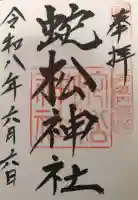 奉拝
蛇松神社
令和八年六月六日